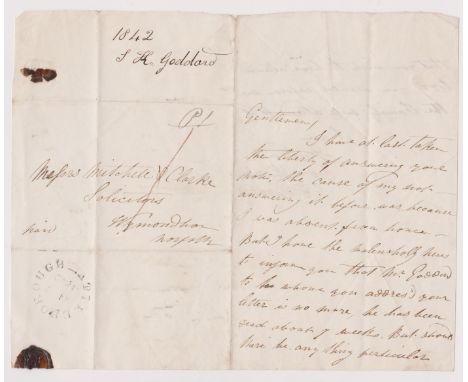 1842
S K. Goddard
P1
Messrs Mitchell & Clarke
Solicitors
Wymondham
Norfolk
Paid
ALDBOROUGH
Gentlemen
I have at last taken
the liberty of answering your
note, the cause of my not
answering it before was because
I was absent from home –
But I have the melancholy news
to inform you that Mr Goddard
to he whome you address'd your
letter is no more, he has been
dead about 7 weeks. But should
there be any thing particular